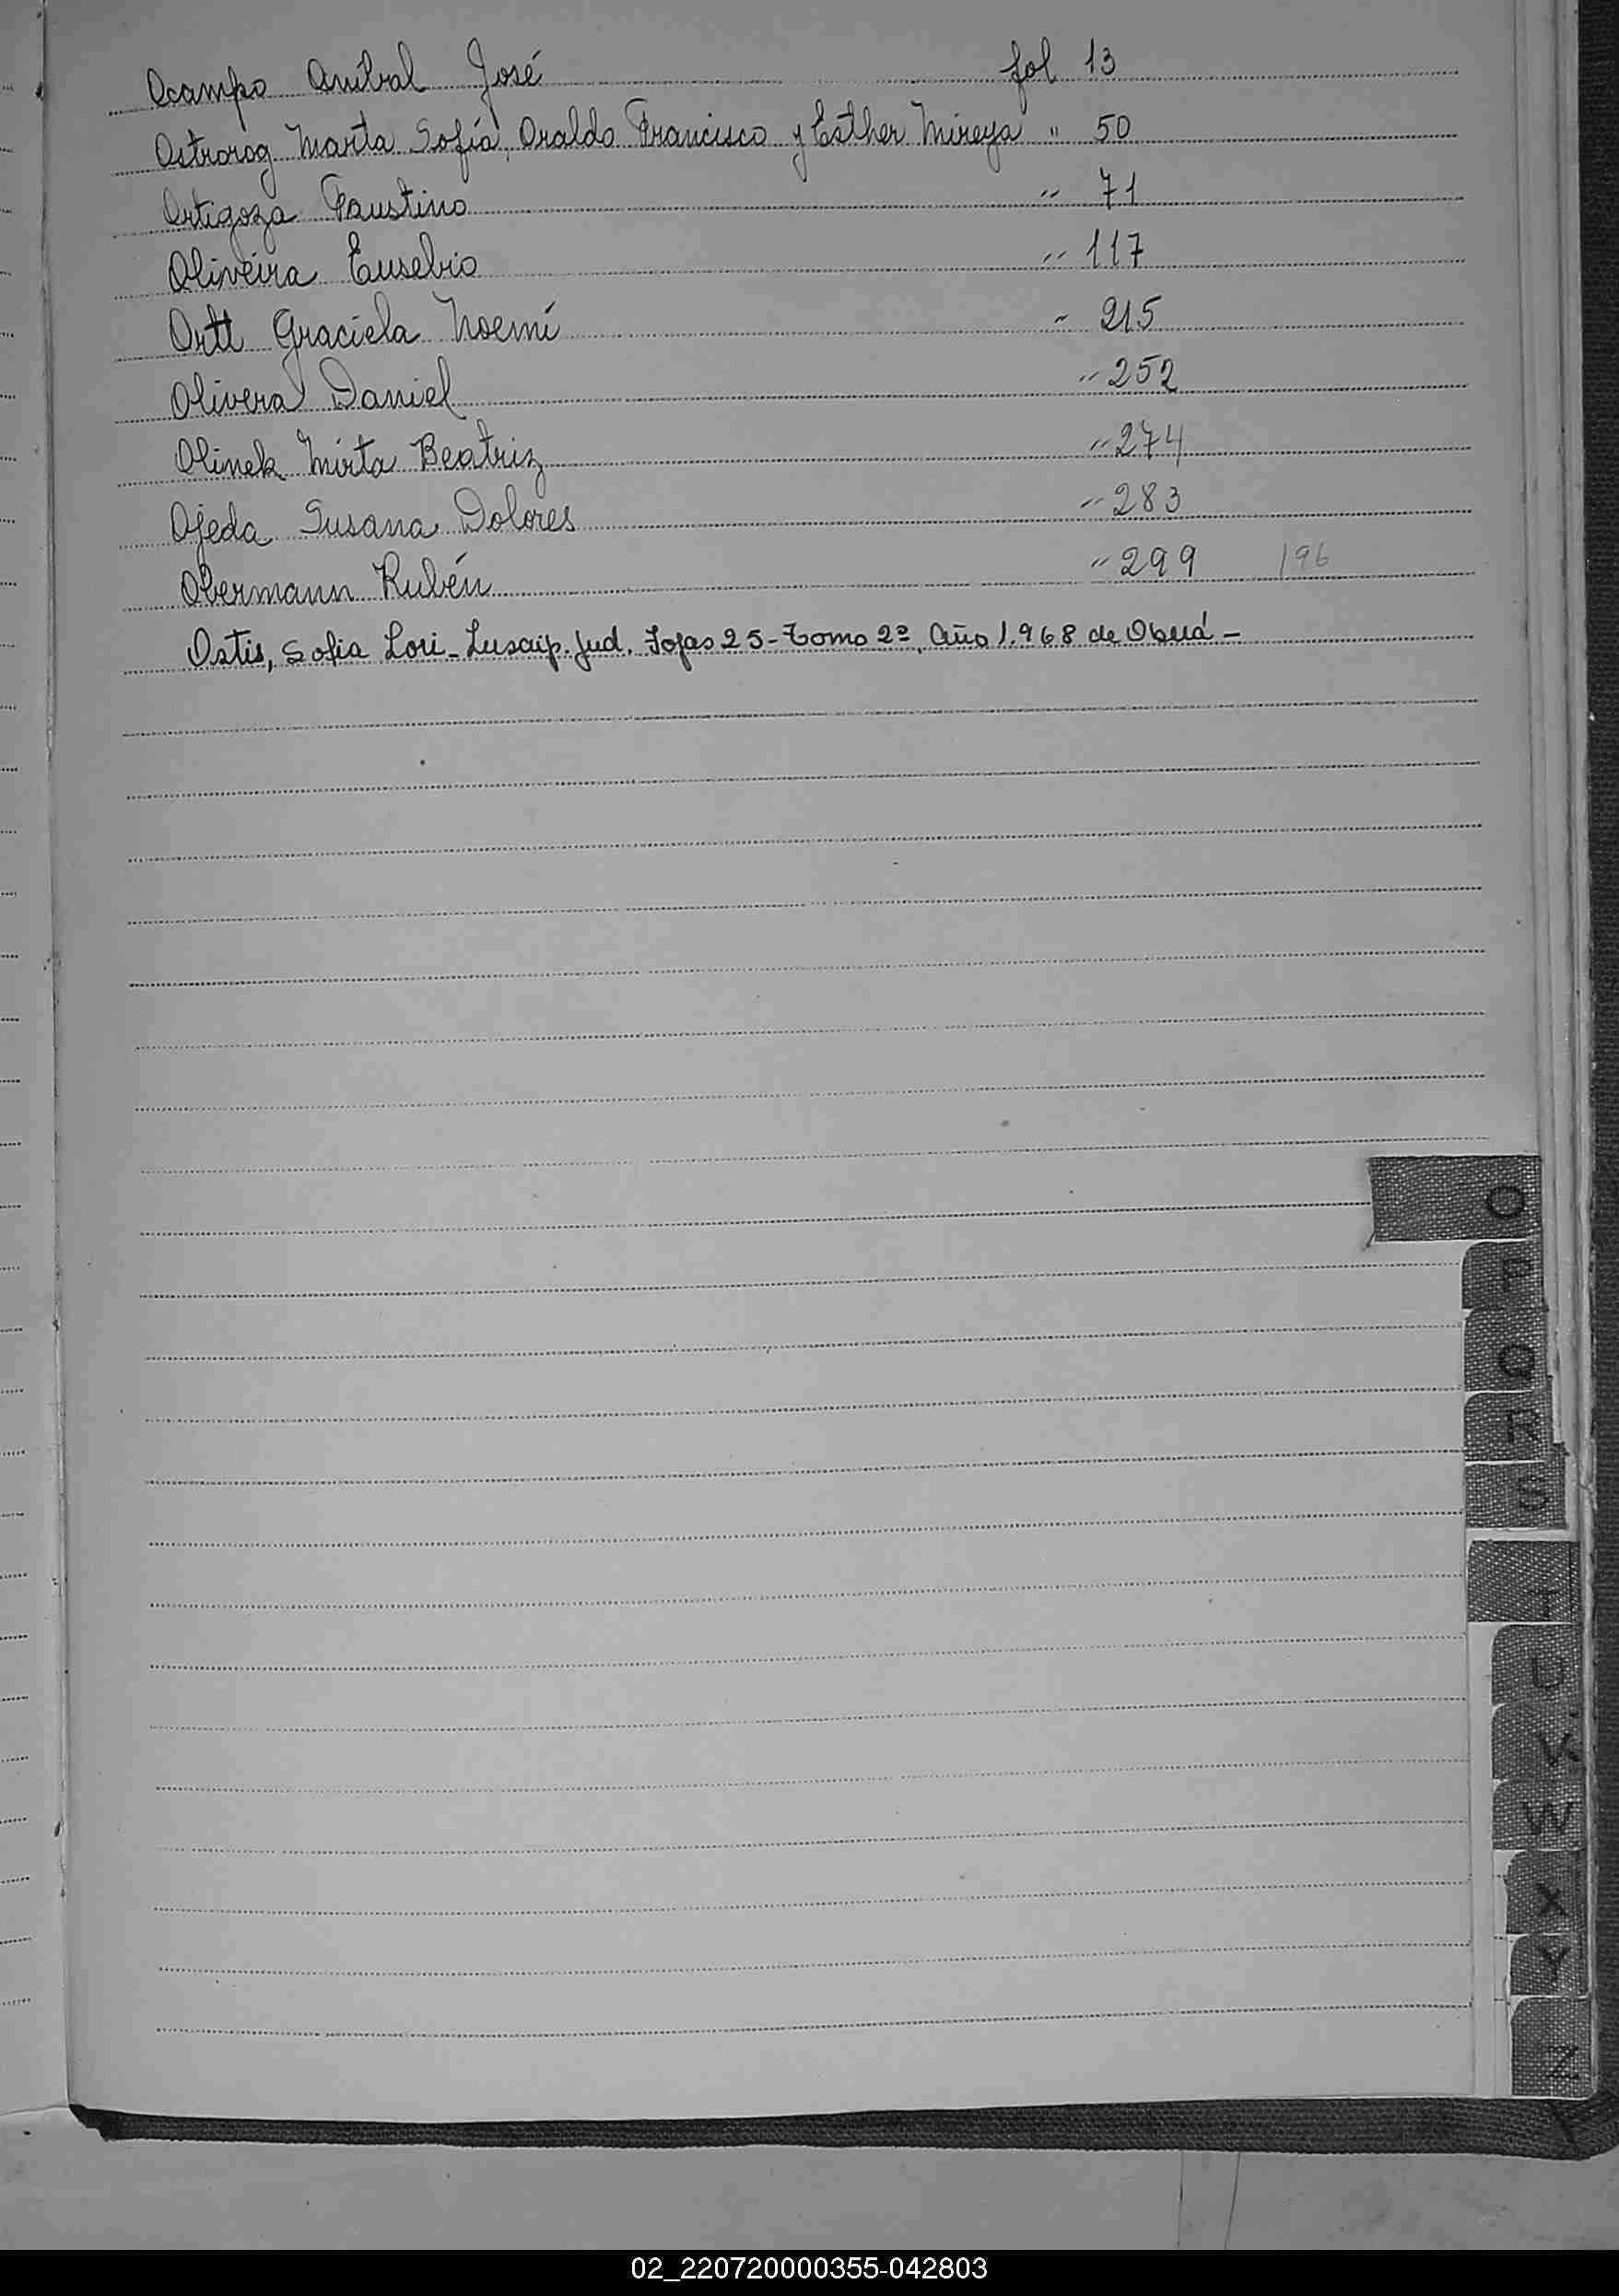 Ocampo Anibal José fol 13
Ostrorog Marta Sofía, Oraldo Francisco y Esther Mireya " 50
Ortigoza Faustino " 71
Oliveira Eusebio " 117
Ortt Graciela Noemí " 215
Olivera Daniel " 252
Olinek Mirta Beatriz " 274
Ojeda Susana Dolores " 283
Obermann Rubén " 299 196
Ostis, Sofia Lori - Inscrip. Jud. Fojas 25 - Tomo 2º, Año 1.968 de Oberá -
O
P
Q
R
S
T
U
V
W
X
Y
Z
02_220720000355-042803